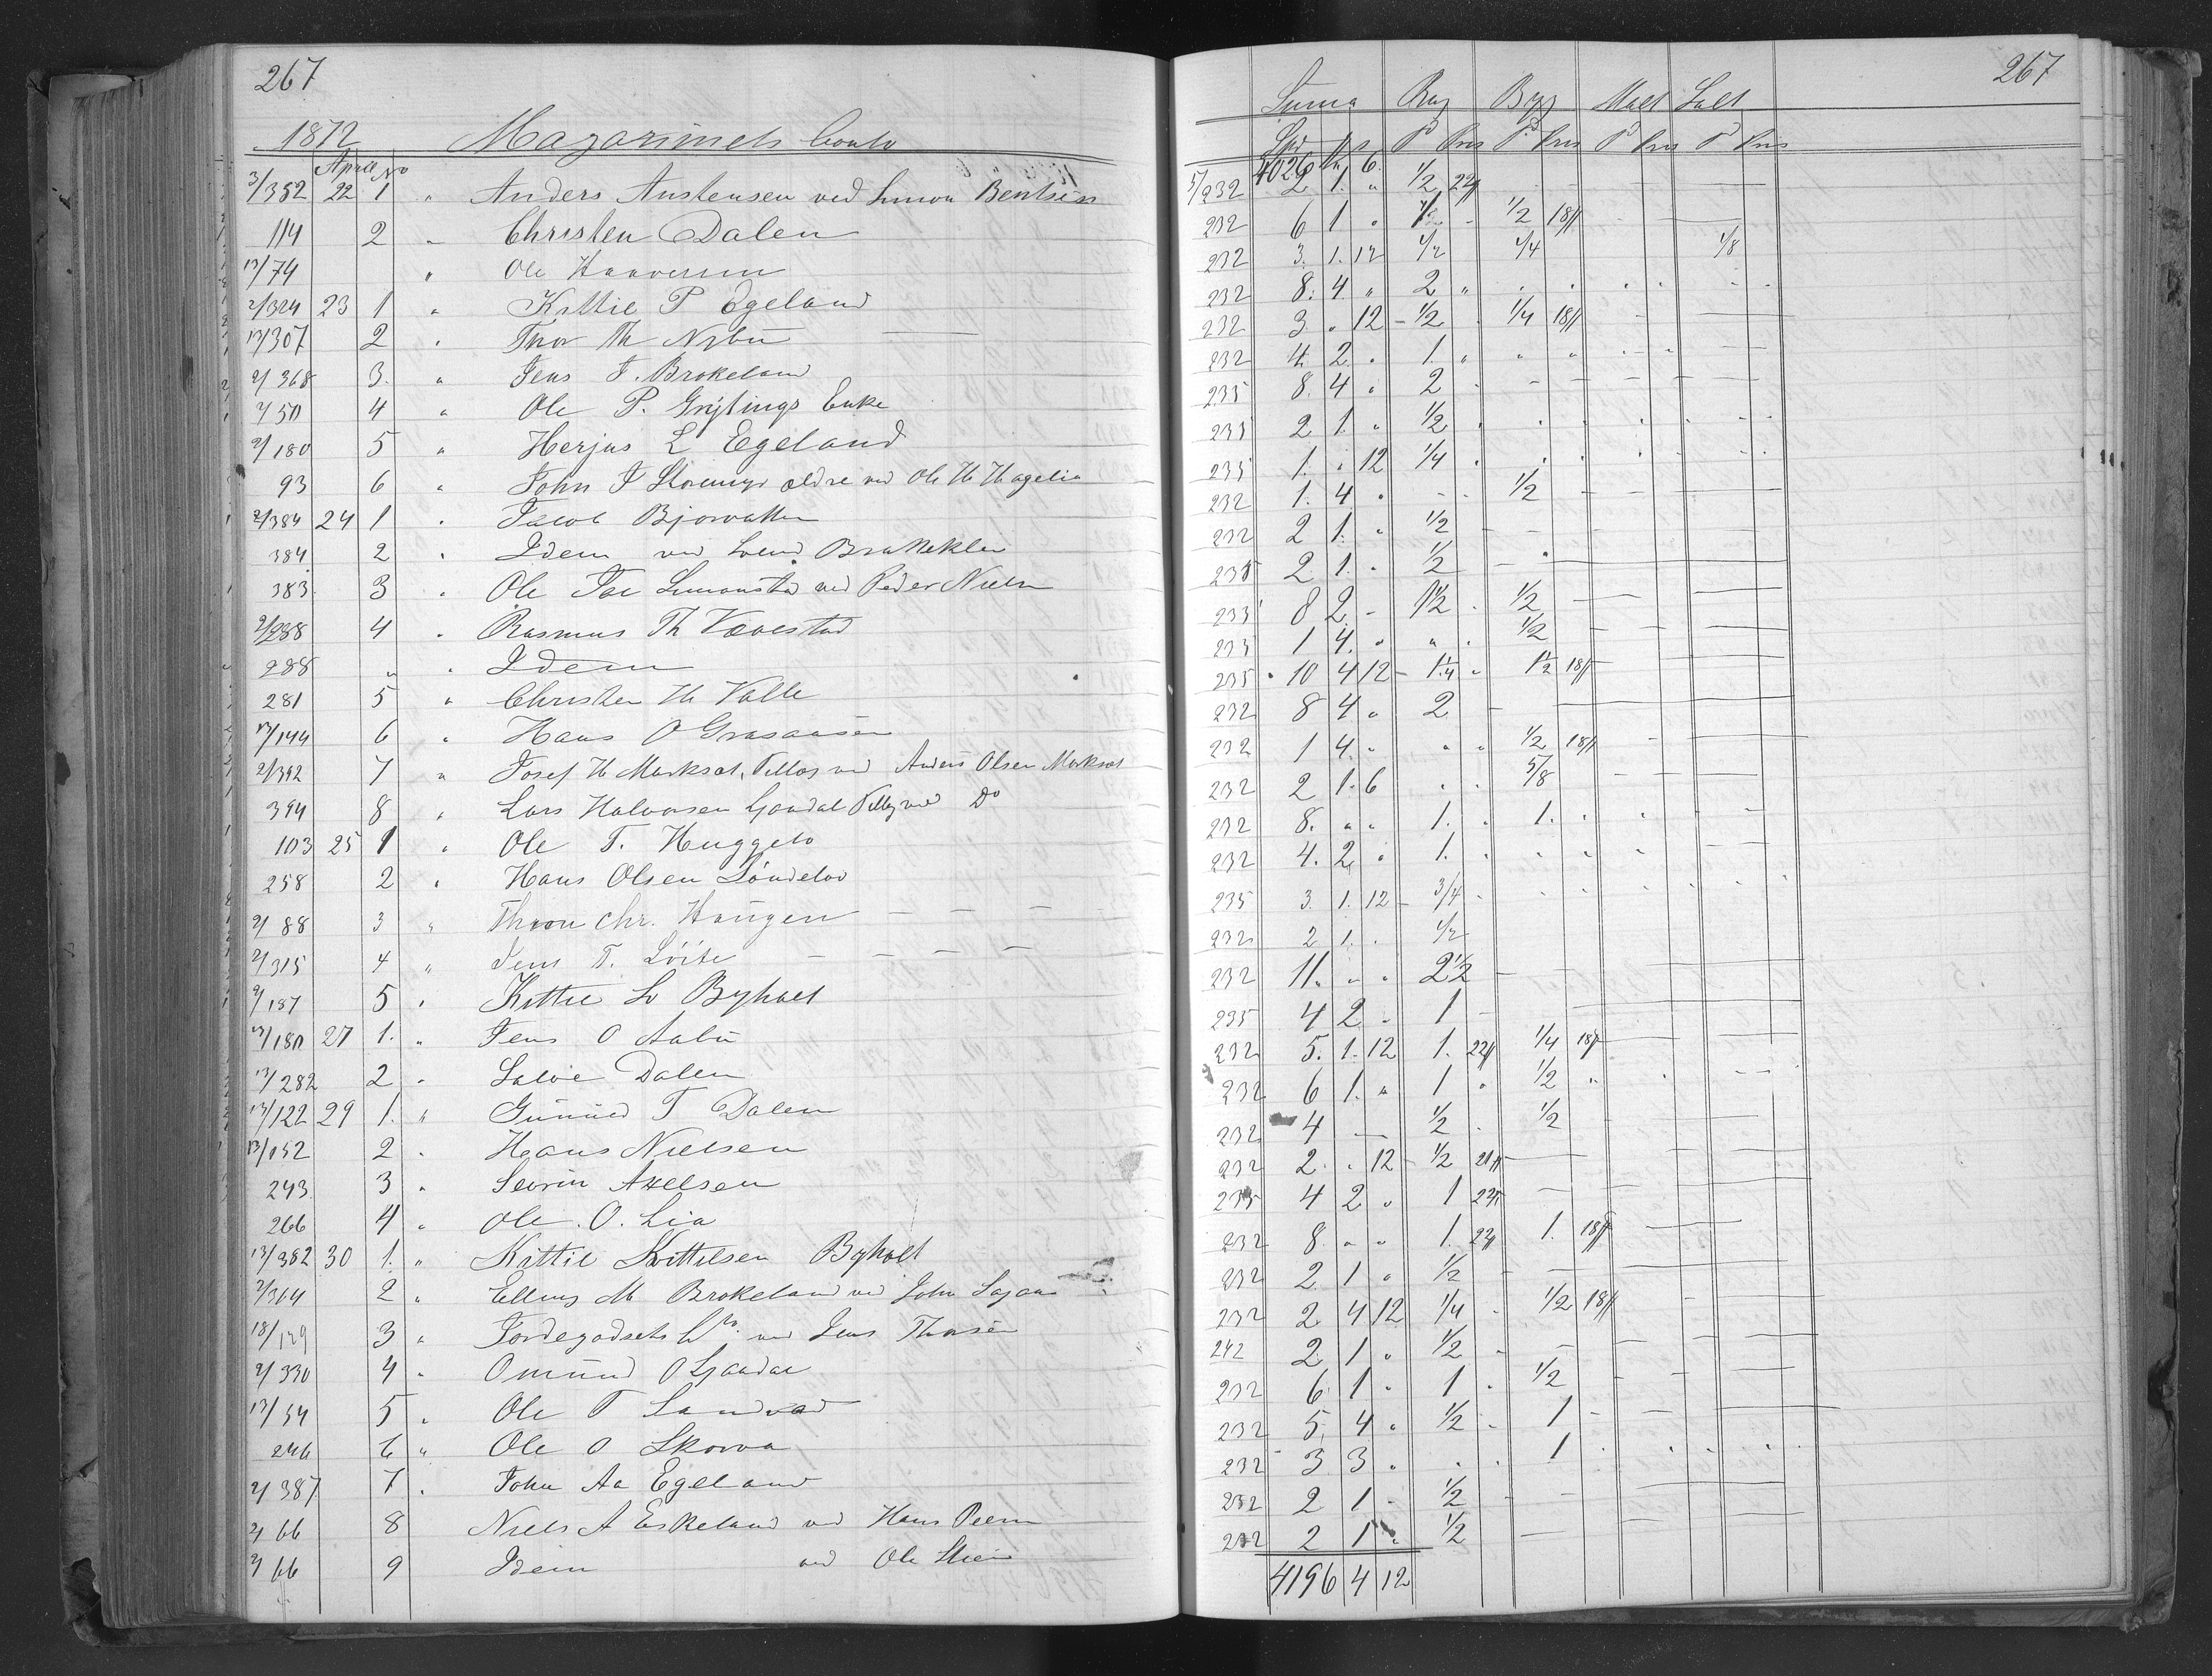 267
1872 Magazinets Conto
April No
3/352 22 1 " Anders Austensen ved Simon Bentsen
114 2 " Christen Dalen
13/74 " Ole Haaversen
2/324 23 1 " Kittil P Egeland
13/307 2 " Thor Th Nybu
2/368 3. " Jens J. Brokeland
2/50 4 " Ole P. Grytings Enke
2/180 5 " Herjus L Egeland
93 6 " John J ældre ved Ole H Hagelia
2/384 24 1 " Jacob Bjorvatten
384 2 " Idem ved Svend Bratteklev
383 3 " Ole Simonstad ved Peder Nielsen
2/288 4 " Rasmus Th Vævestad
288 " " Idem
281 5 " Christen H Valle
13/144 6 " Hans O Graaausen
2/392 7 " Josef H Marksæt, ved Anders Olsen Marksæt
394 8 " Lars Halvorsen Gjøvdal ved Do
103 25 1 " Ole T. Huggeto
258 2 " Hans Olsen Søndeløv
2/88 3 " Thron Chr. Haugen
2/315 4 " Jens T. Løite
2/187 5 " Kittil S Byholt
13/180 27 1. " Jens O Aabu
13/282 2 " Salve Dalen
13/122 29 1. " Gunuld T Dalen
13/152 2 " Hans Nielsen
243 3 " Severin Axelsen
266 4 " Ole. O. Lia
13/382 30 1. " Kittil Kittilsen Byholt
2/364 2 " Elling M Brokeland ved John
18/129 3 " Jordegodsets Co. ved Jens Thorsen
2/330 4 " Omund O Gjøvdal
13/54 5 " Ole T Sandvad
246 6 " Ole O Skorva
2/387 7 " John Aa Egeland
2/66 8 Niels A Eskeland ved Hans
2/66 9 Idem ved Ole
267
Suma Rug Byg Malt Salt
Spd P Pris P Pris P Pris P Pris
4026 6.
5/232 2 1. " 1/2 22ß
232 6 1 " 1/2 1/2 18ß
232 3. 1. 12 1/2 1/4 1/8
232 8. 4 " 2 "
232 3 " 12 1/2 1/4 18ß
232 4. 2. " 1. "
235 8. 4 " 2
235 2 1. " 1/2
235 1. " 12 1/4
232 1. 4 " 1/2
232 2 1. " 1/2
235 2 1. " 1/2
235 8 2 - 1 1/2 1/2
235 1 4. " " 1/2
235 10 4 12 1 1/4 1 1/2 18ß
232 8 4 " 2
232 1 4 " " " 1/2 18ß
232 2 1. 6 5/8
232 8. " " 1. 1.
232 4. 2 " 1.
235 3. 1. 12 3/4
232 2 1. " 1/2
232 11. " " 2 1/2
235 4 2 - 1
232 5. 1. 12 1. 22ß 1/4 18ß
232 6 1. " 1 " 1/2 "
232 4 — 1/2 1/2
232 2. " 12 1/2
235 4 2 " 1 22ß
232 8 " " 1. 22ß 1. 18ß
232 2 1 " 1/2
232 2 4 12 1/4 1/2 18ß
242 2 1 " 1/2
232 6 1 " 1 " 1/2
232 5. 4 " 1/2 1
232 3 3 " 1
232 2 1 - 1/2
232 2 1 " 1/2
4196 4 12